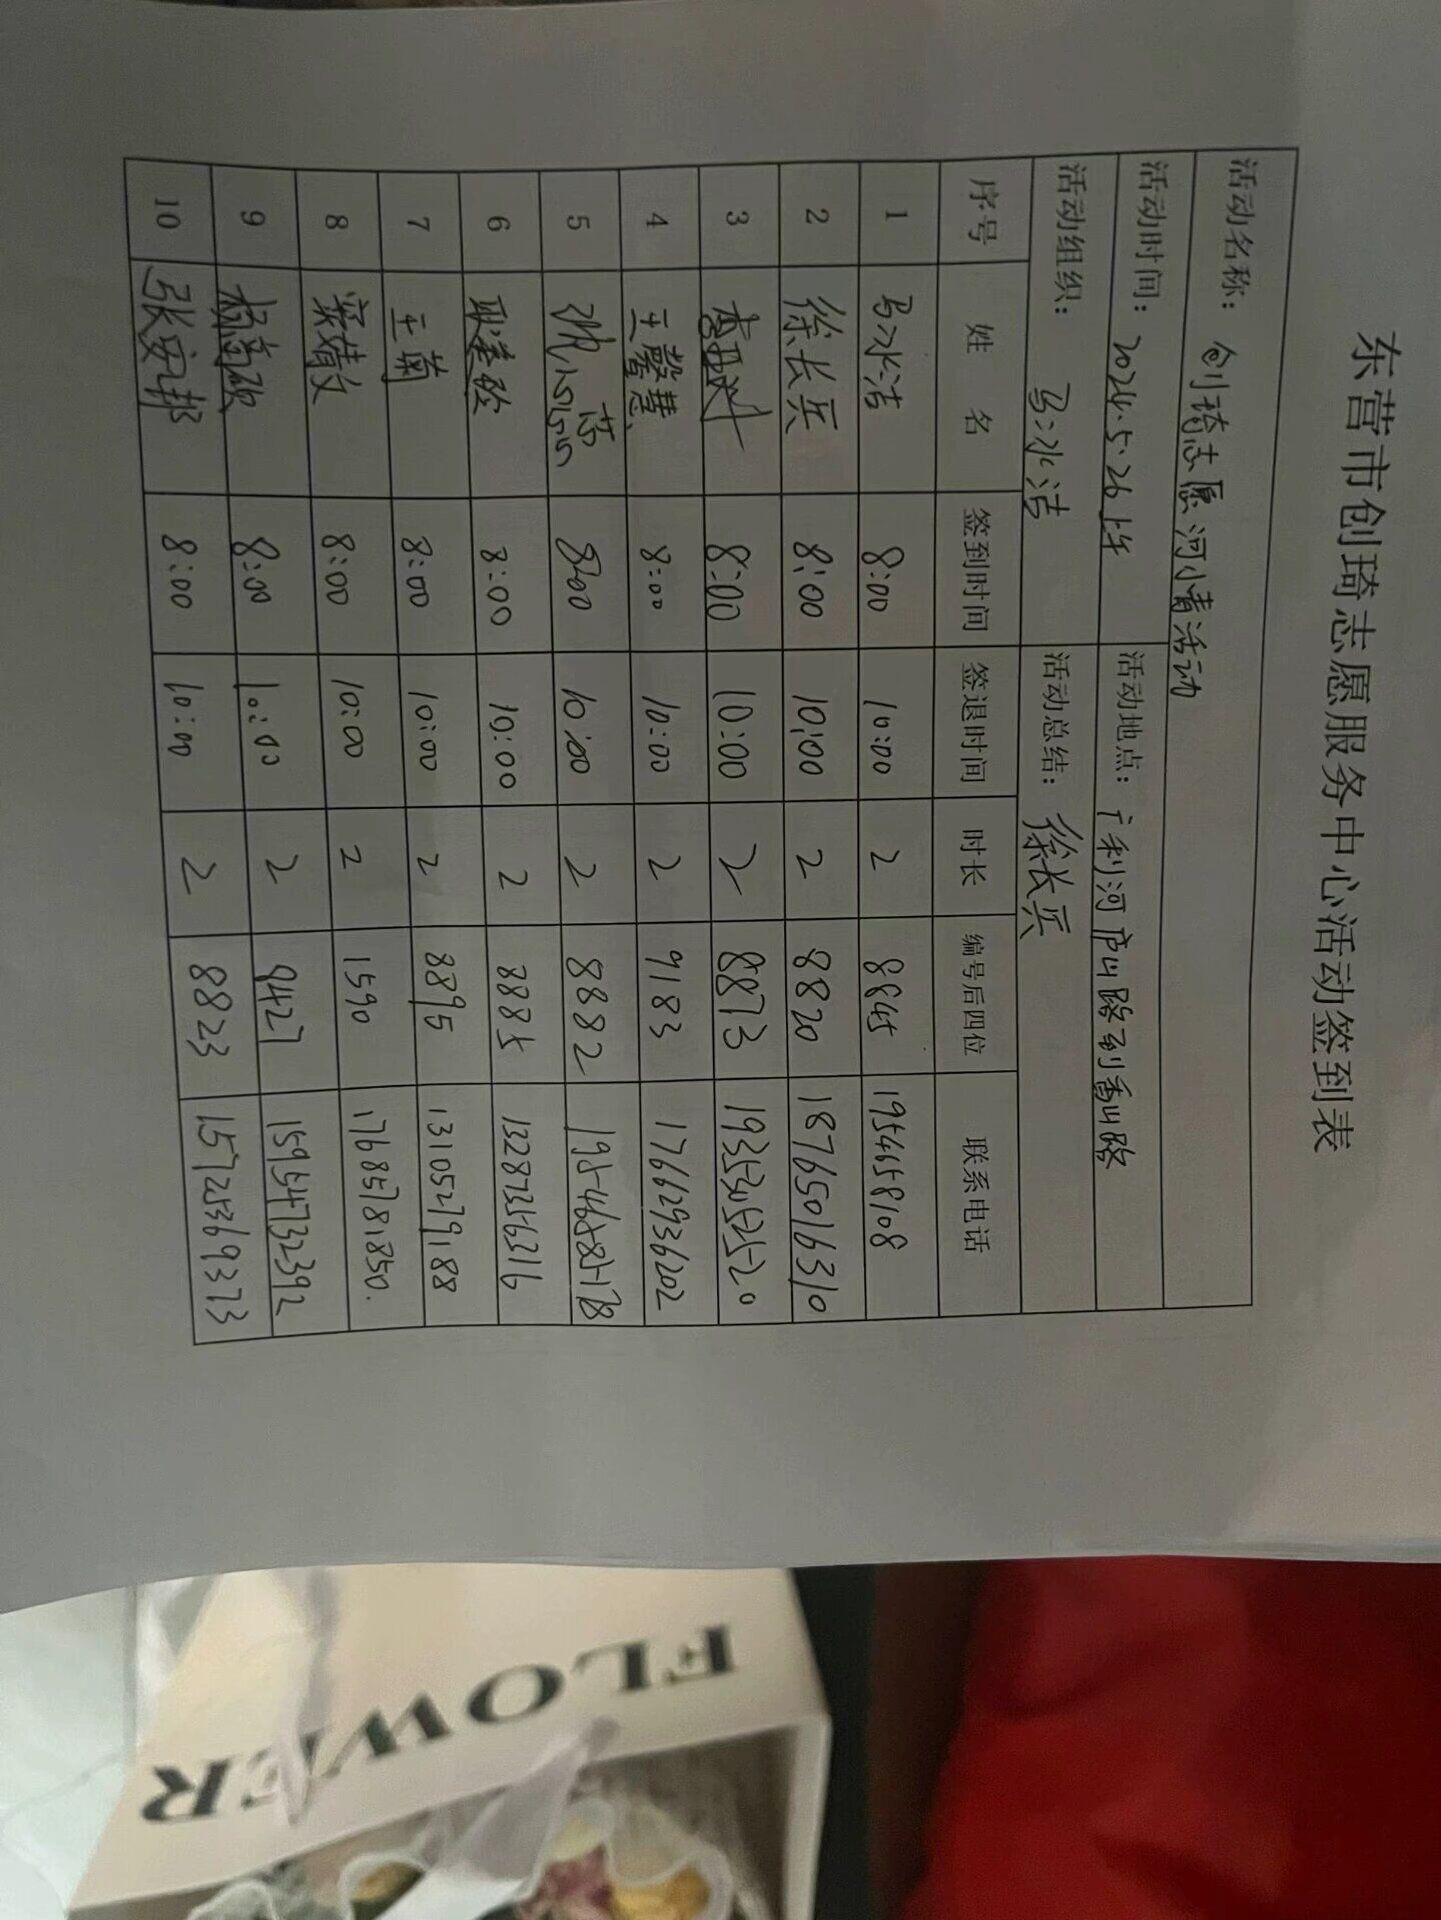 东营市创琦志愿服务中心活动签到表
活动名称: 创琦志愿河小青活动
活动时间: 2024.5.26上午 活动地点: 广利河庐山路到香山路
活动组织: 马冰洁 活动总结: 徐长兵
序号 姓名 签到时间 签退时间 时长 编号后四位 联系电话
1 马冰洁 8:00 10:00 2 8845 19546458108
2 徐长兵 8:00 10:00 2 8820 18765016310
3 8:00 10:00 2 8873 19353052520
4 王馨慧 8:00 10:00 2 9183 17662936202
5 8:00 10:00 2 8882 19546585178
6 8:00 10:00 2 8885 13287356316
7 王菊 8:00 10:00 2 8895 13105279188
8 梁婧文 8:00 10:00 2 1590 17685781850.
9 杨高硕 8:00 10:00 2 9427 15954732392
10 张安邦 8:00 10:00 2 8823 15725369373
FLOWER